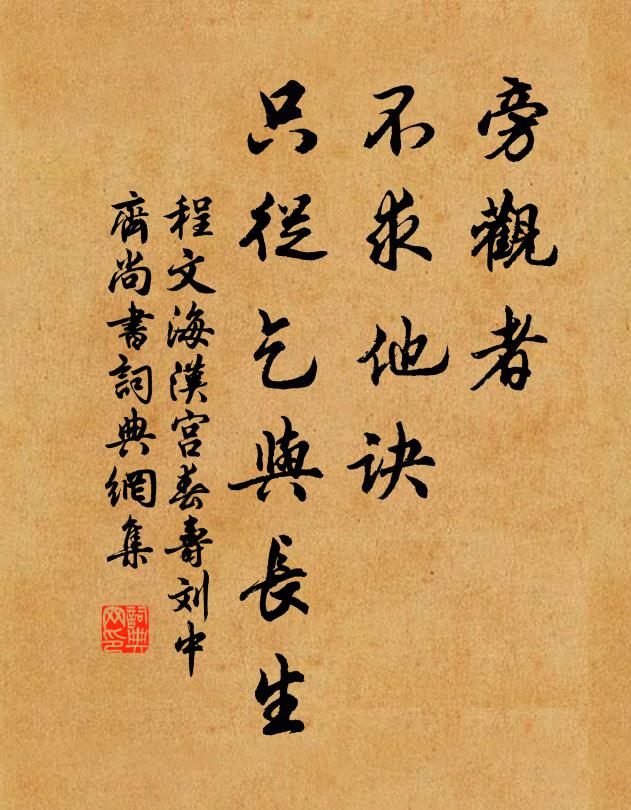 旁觀者
不求他訣
只從乞與長生
程文海漢宮春壽刘中
齋尚書詞典網集
詞典网印